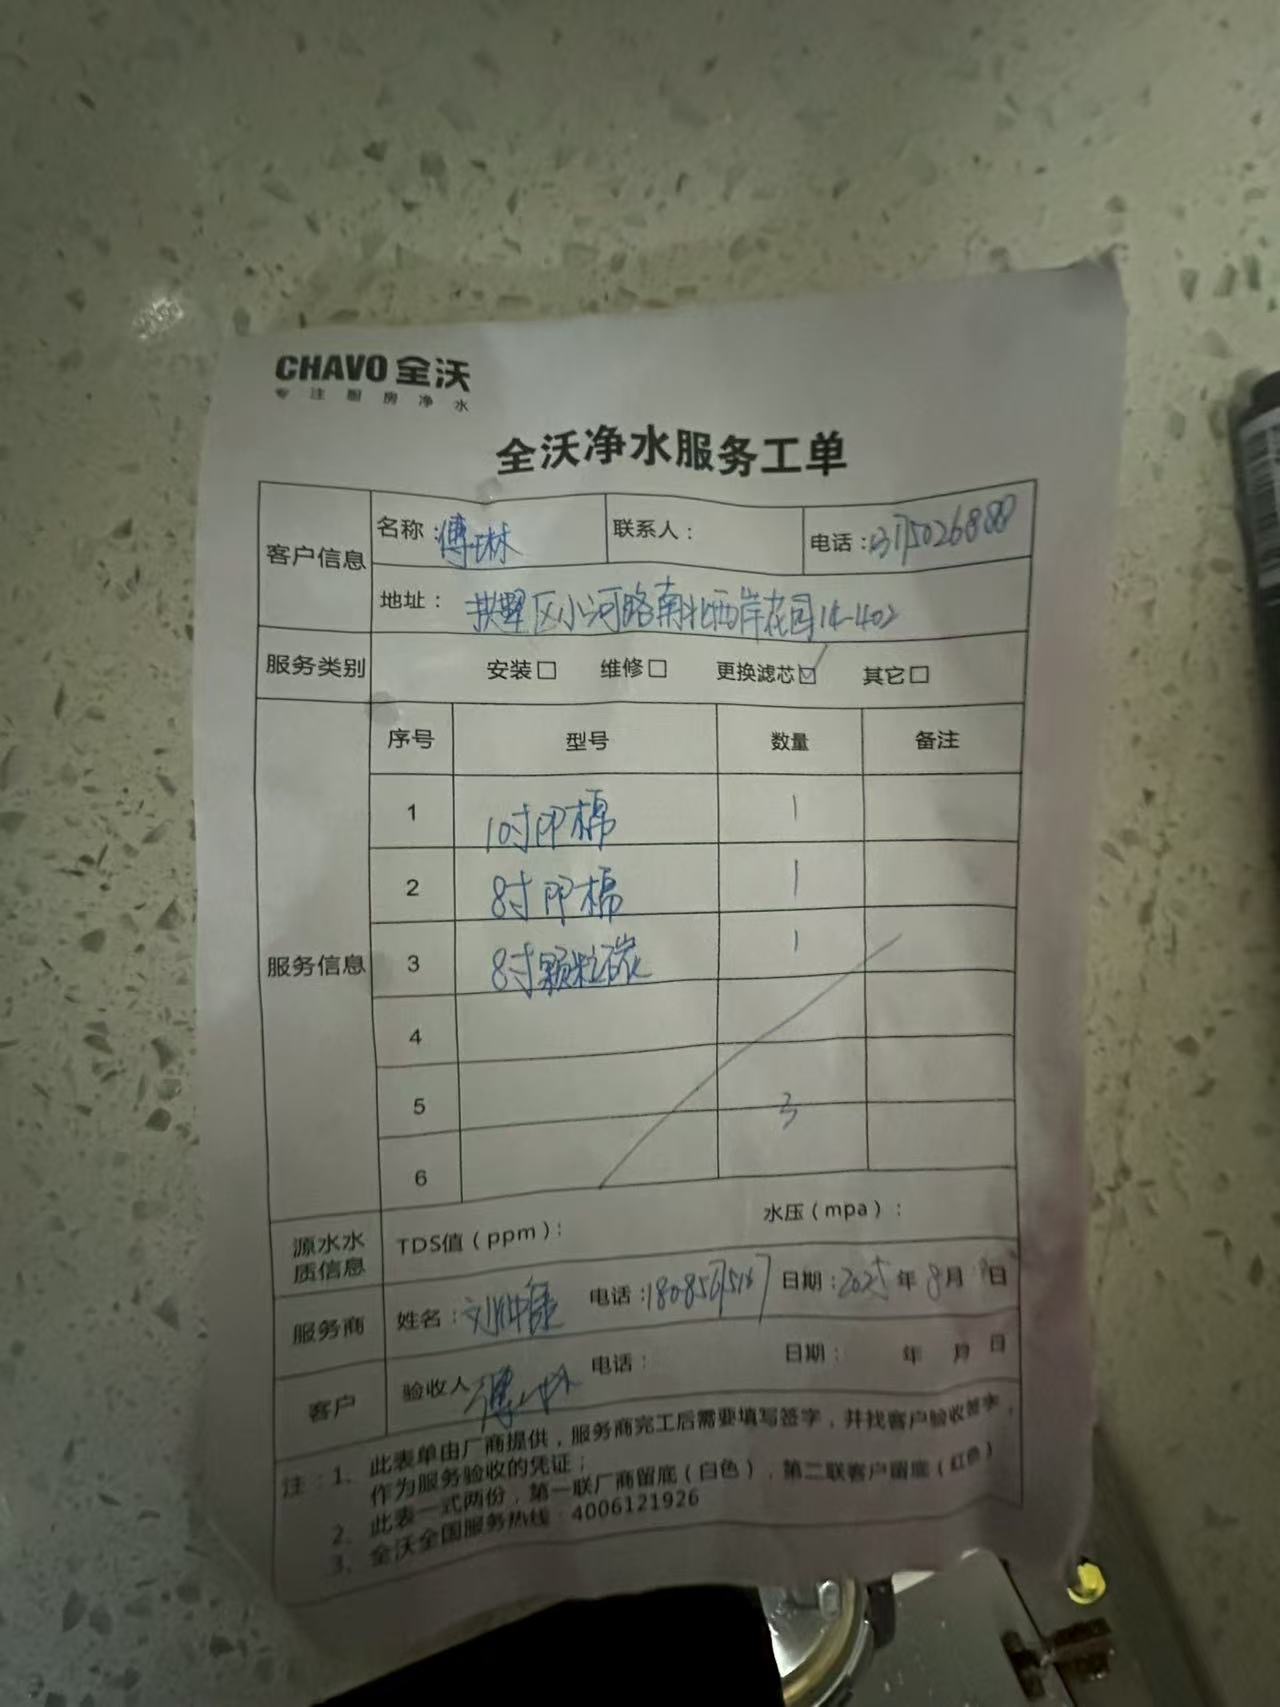 CHAVO 全沃
专注厨房净水
全沃净水服务工单
客户信息 名称：傅琳 联系人： 电话：13175026888
地址：拱墅区小河路南北西岸花园14-402
服务类别 安装□ 维修□ 更换滤芯☑ 其它□
服务信息
序号 型号 数量 备注
1 10寸PP棉 1
2 8寸PP棉 1
3 8寸颗粒碳 1
4
5
3
6
源水水质信息 TDS值（ppm）： 水压（mpa）：
服务商 姓名： 电话： 日期：2025年8月 日
客户 验收人 傅琳 电话： 日期： 年 月 日
注：1、此表单由厂商提供，服务商完工后需要填写签字，并找客户验收签字，
作为服务验收的凭证；
2、此表一式两份，第一联厂商留底（白色），第二联客户留底（红色）
3、全沃全国服务热线：4006121926